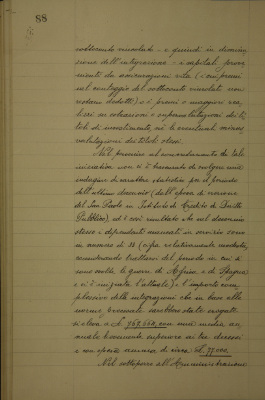 88
sottoconto vincolati - e quindi in diminu
zione dell'integrazione - i capitali prove
nienti da assicurazioni vita (i cui premi
sul conteggio del sottoconto vincolati non
vennero dedotti) o i premi o maggiori rea
lizzi su estrazioni o supervalutazioni dei ti
toli di investimento, nè le eventuali minus
valutazioni dei titoli stessi.
Nel premere al accoglimento di tale
iniziativa non si è mancato di svolgere una
indagine di carattere statistico per il periodo
dell'ultimo decennio (dall'epoca di erezione
del San Paolo in Istituto di Credito di Diritto
Pubblico), ed è così risultato che nel decennio
stesso i dipendenti mancati in servizio sono
in numero di 32 (cifra relativamente modesta,
considerando trattarsi del periodo in cui si
sono svolte le guerre di Africa e di Spagna
e si è iniziata l'attuale) e l'importo com
plessivo delle integrazioni che in base alle
norme proposte sarebbero state erogate
si eleva a £. 768.660, con una media an
nuale lievemente superiore ai tre decessi
e con spesa annua di circa £. 77.000.
Nel sottoporre all'Amministrazione